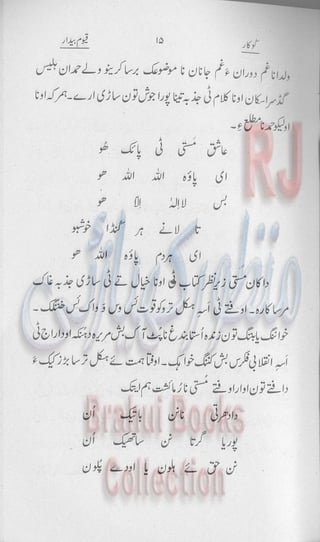 کوکار ۱۵ قیوم بیدار
ولدا نا غم دوران ءِ غم جانان نا موضوعک برسا کرینو ولے حمدان بلیس
گڈ سرا سکان اونا کلام ٹی جذبہ تینا پورا جوش تون ساڑی ارے۔ ہمرکہ اونا
اولیکو حمد نا مطلع ءِ۔
عاشق مستی ٹی پانک ھُو
ای پاوہ اللہ اللہ ھو
بس لاالہٰ الّا ھو
تا لانے ہر گنڈا خوشبو
ای ہردم پاوہ اللہ ھو
داکان مُستی زیر نظر کتاب ٹی اونا خیال تے ٹی ساڑی جذبہ غاک
مرسا کارہ۔ اوفتے ٹی اسہ ہنکل تروکو توٹ ئس وس و واک ئس خننگک۔
خواننگ یا بننگ تون زندہ اُستا بندغ نا پُٹ آک بش مریرہ دہنکہ اودا راج ٹی
اسہ انقلابی فکر س بش کننگ خواہک۔ اوفتا ہمت ئے ہنکل ترسا بڑز کیک ءِ
دافتے تون اوار اوفتے مُستی نا رُماکشت ہم ایتک
دا دھرتی نانن باتیک اُن
پوریا گرتا نن ساتھیک اُن
نن حق ئے ہلون یا اودے پُلون
RJ
منظور کبزائی
Brahui Books
Collection